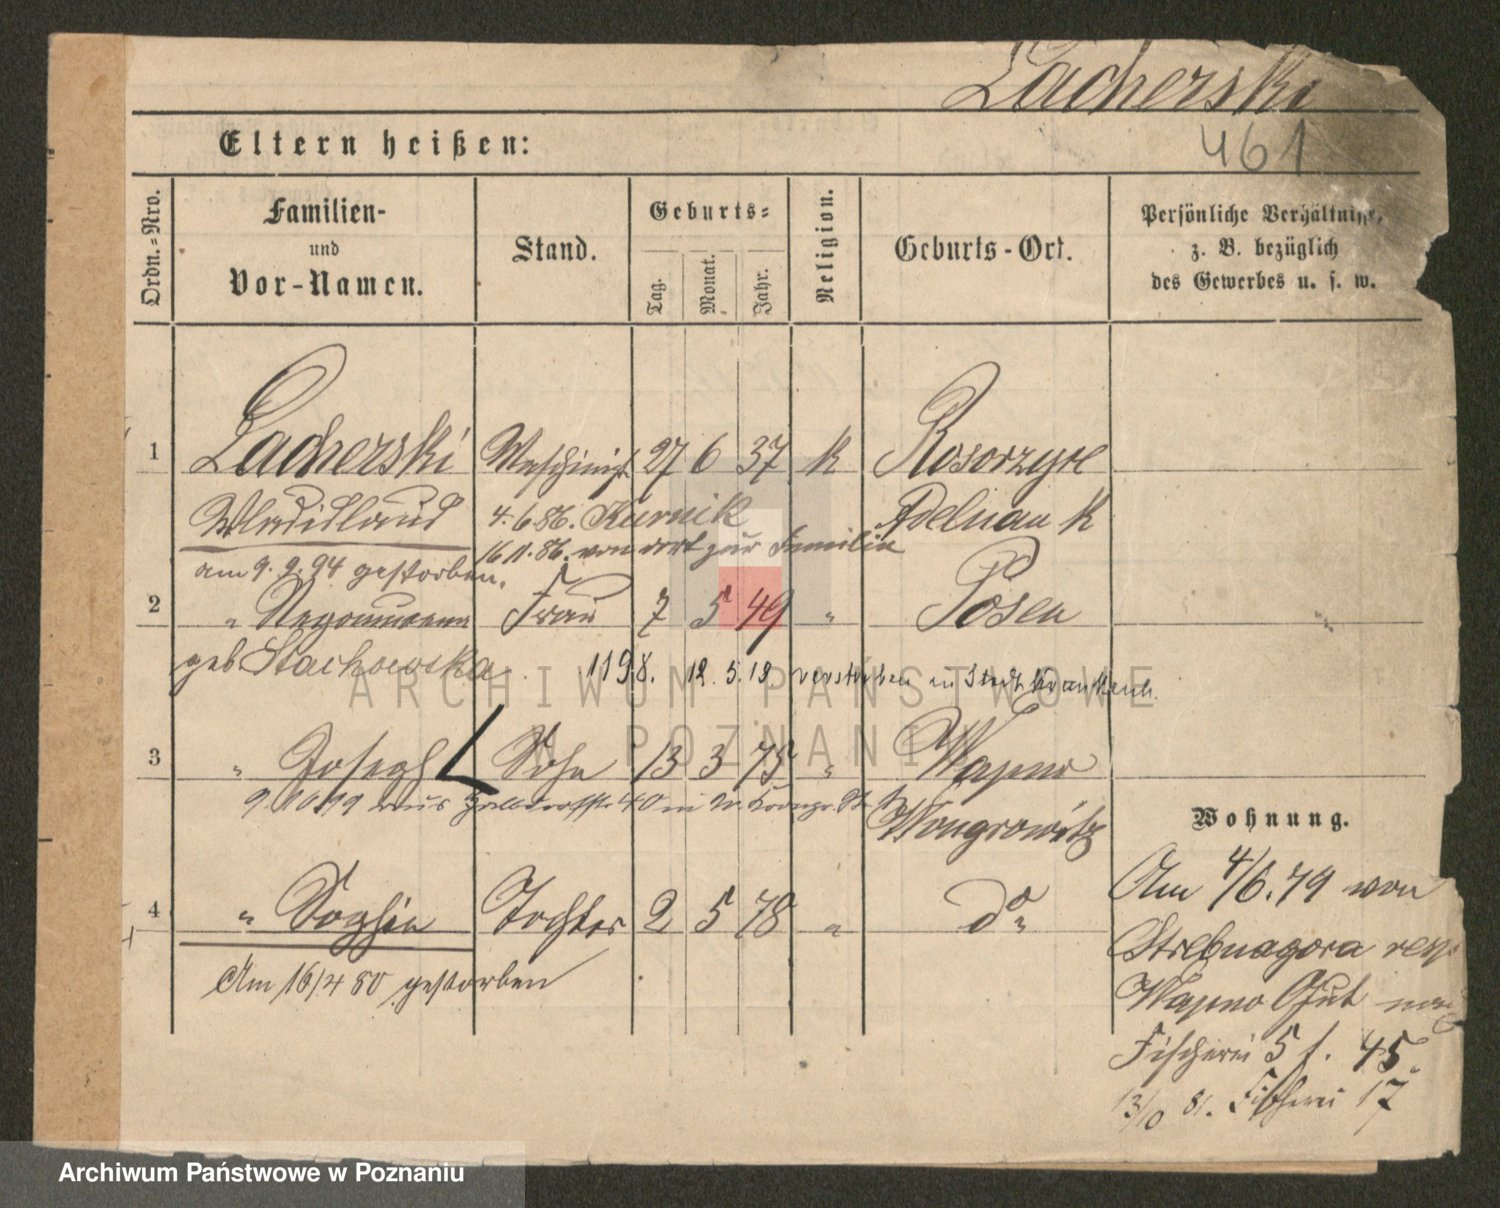 Lacherski
461
Eltern heißen:
Ordn.-Nro.
Familien-
und
Vor-Namen.
Stand.
Geburts-
Tag.
Monat.
Jahr.
Religion.
Geburts-Ort.
Persönliche Verhältnisse,
z. B. bezüglich
des Gewerbes u. s. w.
1 Lacherski Maschinist 27 6 37 k
Wladislaus 4.6.86. Kurnik Adelnau K
16.11.86. von dort zur Familie
am 9.9.94 gestorben.
2 " Frau 7 5 49 " Posen "
geb Stachowska 1198. 12.5.19. verstorben im Stadtkrankenh.
3 " Joseph Sohn 13 3 75 " Wapno
9.10.99 aus 40 in
Wongrowitz
Wohnung.
4 " Sophie Tochter 2 5 78 " do "
Am 16/4 80 gestorben
Am 4/6.79 von
Wapno Gut
Fischerei 5 f. 45.
13/10 81. Fischerei 17
ARCHIWUM PAŃSTWOWE
W POZNANIU
Archiwum Państwowe w Poznaniu